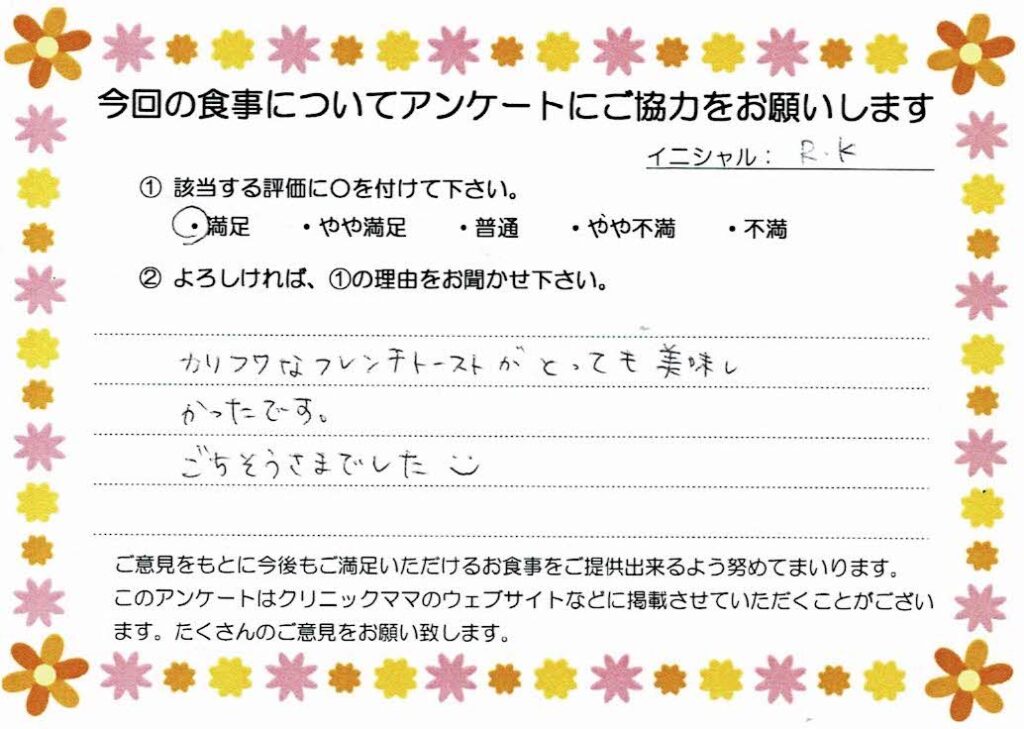 今回の食事についてアンケートにご協力をお願いします
イニシャル： R.K
① 該当する評価に〇を付けて下さい。
・満足 ・やや満足 ・普通 ・やや不満 ・不満
② よろしければ、①の理由をお聞かせ下さい。
カリフワなフレンチトーストがとっても美味し
かったです。
ごちそうさまでした
ご意見をもとに今後もご満足いただけるお食事をご提供出来るよう努めてまいります。
このアンケートはクリニックママのウェブサイトなどに掲載させていただくことがござい
ます。たくさんのご意見をお願い致します。